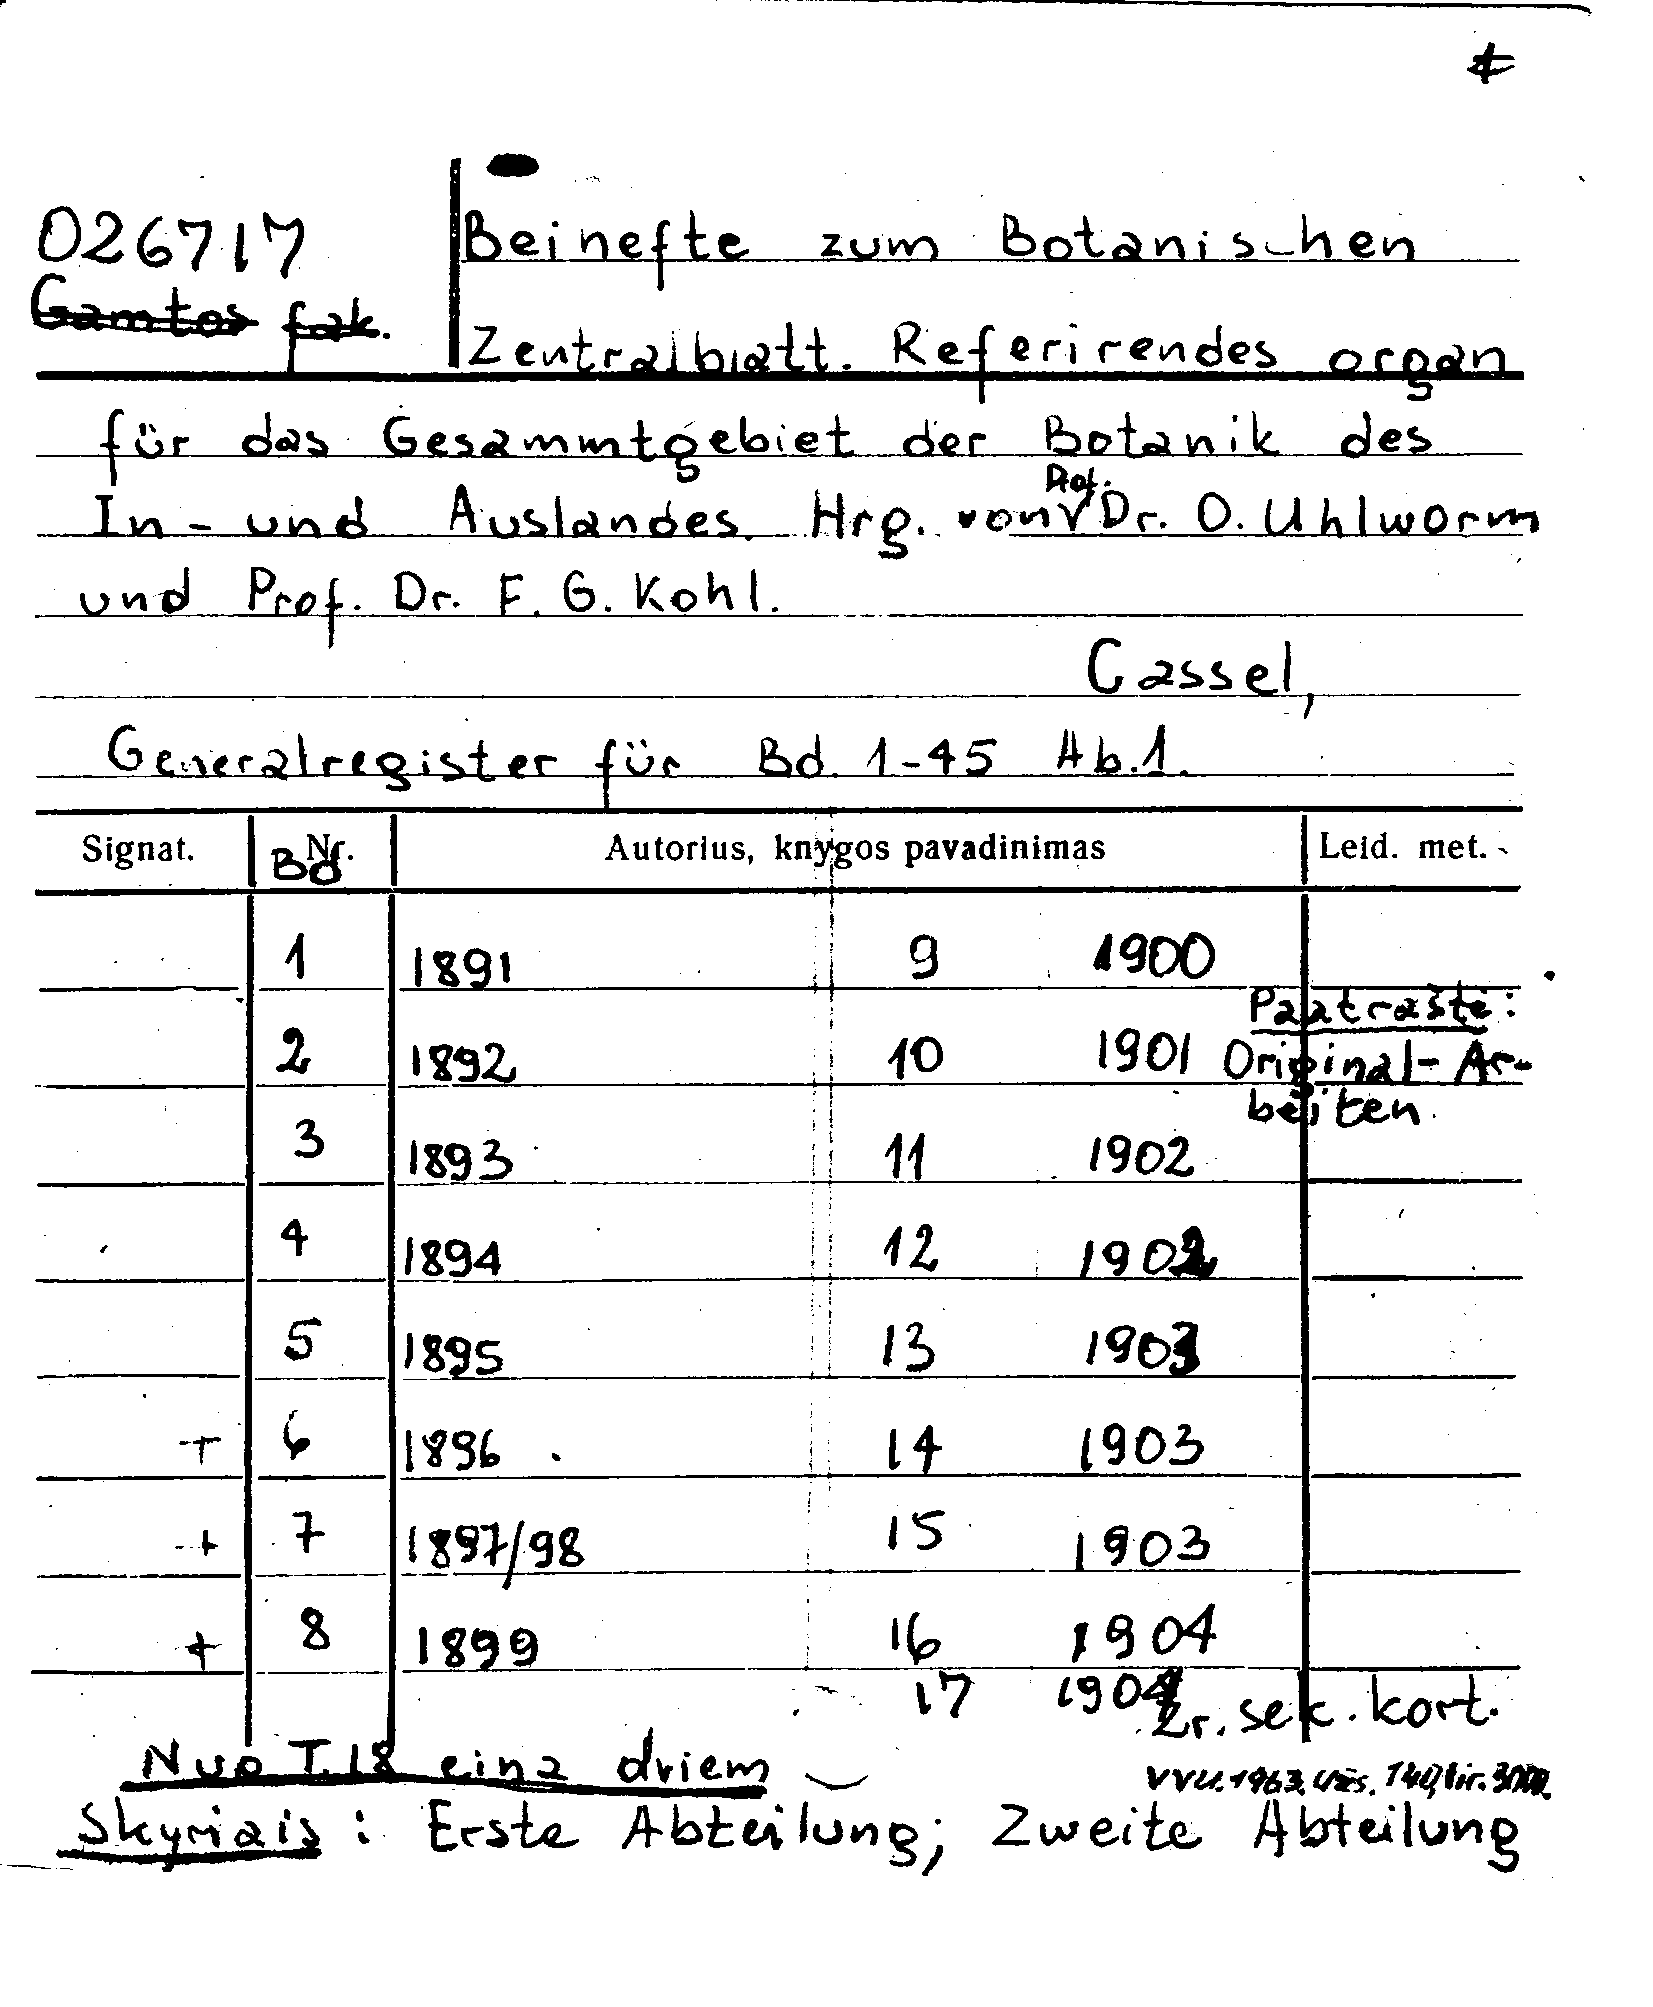 026717
Gamtos fak.
Beihefte zum Botanischen
Zentralblatt. Referirendes organ
für das Gesammtgebiet der Botanik des
In- und Auslandes. Hrg. von Prof. Dr. O. Uhlworm
und Prof. Dr. F. G. Kohl.
Cassel,
Generalregister für Bd. 1-45 Ab.1.
Signat. Nr. Bd Autorius, knygos pavadinimas Leid. met.
1 1891 9 1900
Paatraštė:
2 1892 10 1901 Original-Ar-
beiten.
3 1893 11 1902
4 1894 12 1902
5 1895 13 1903
+ 6 1896 14 1903
+ 7 1897/98 15 1903
+ 8 1899 16 1904
17 1904
Žr. sek. kort.
Nuo T.18 eina dviem
VVU. 1963. Užs. 140, tir. 3000.
Skyriais: Erste Abteilung; Zweite Abteilung